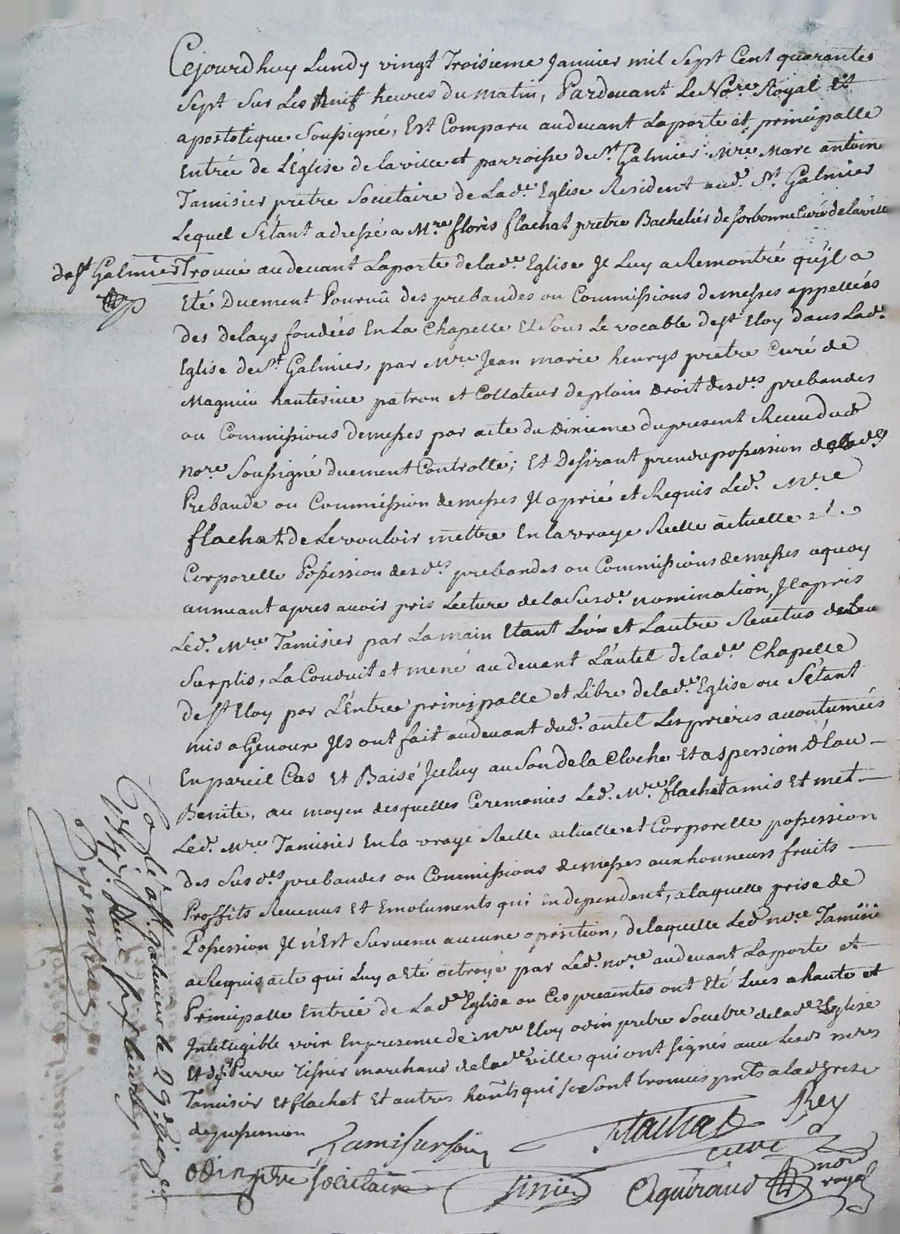 Cejourdhuy Lundy vingt Troisieme Janvier mil Sept Cent quarante
Sept Sur Les Neuf heures du matin, Pardevant Le No.re Royal Et
apostolique Soussigné, Est Comparu audevant La porte et principalle
Entrée de L'Eglise de la ville et parroisse de St Galmier M.re Marc antoine
Tamisier prêtre Societaire de Lad.e Eglise Resident aud. St Galmier
Lequel S'étant adressé a M.re floris flachat prêtre Bachelier de sorbonne Curé de la ville
de St Galmier Trouvé audevant La porte de lad.e Eglise Il Luy a Remontré qu'jl a
Eté Duement Pourvû des prebandes ou Commissions de messes appellées
des delays fondées En La Chapelle Et Sous Le vocable de St Eloy dans Lad.e
Eglise de St Galmier, par M.re Jean marie henrys prêtre Curé de
Magnieu hauterive patron et Collateur de plain droit desd.es prebandes
ou Commissions de messes par acte du dixieme du present Receu dud.
no.re Soussigné duement Controllé; Et Desirant prendre possession de lad.e
Prebande ou Commission de messes Il a prié et Requis Led. M.re
flachat de Le vouloir mettre En la vraye Reelle actuelle et
Corporelle Possession desd.es prebandes ou Commissions de messes a quoy
annuant apres avoir pris Lecture de la Susd.e nomination, Il a pris
Led. M.re Tamisier par La main Etant L'un et L'autre Revetus de Leur
Surplis, La Conduit et mené audevant L'autel de lad.e Chapelle
de St Eloy par L'Entrée principalle et Libre de lad.e Eglise ou S'étant
mis a Genoux Ils ont fait audevant dud. autel Les prières accoutumées
En pareil Cas Et Baisé Jceluy au Son de la Cloche Et aspersion d'Eau
Benite, au moyen desquelles Ceremonies Led. M.re flachat a mis Et met
Led. M.re Tamisier En La vraye Reelle actuelle et Corporelle possession
des Susd.es prebandes ou Commissions de messes aux honneurs fruits
Proffits Revenus Et Emoluments qui en dependent, a laquelle prise de
Possession Il n'Est Survenu aucune oposition, de laquelle Led. M.re Tamisier
a Requis acte qui Luy a Eté octroyé par Led. no.re audevant La porte et
Principalle Entrée de Lad.e Eglise ou Ces presentes ont Eté Lues a haute et
Intelligible voix En presence de M.re Eloy odin prêtre de lad.e Eglise
Et de Sr Pierre marchand de lad.e ville qui ont signés avec Lesd. M.res
Tamisier Et flachat Et autres qui se Sont trouvés a lad. prise
de possession
Tamisier
flachat curé
Rey
odin ptre Societaire
no.re royal